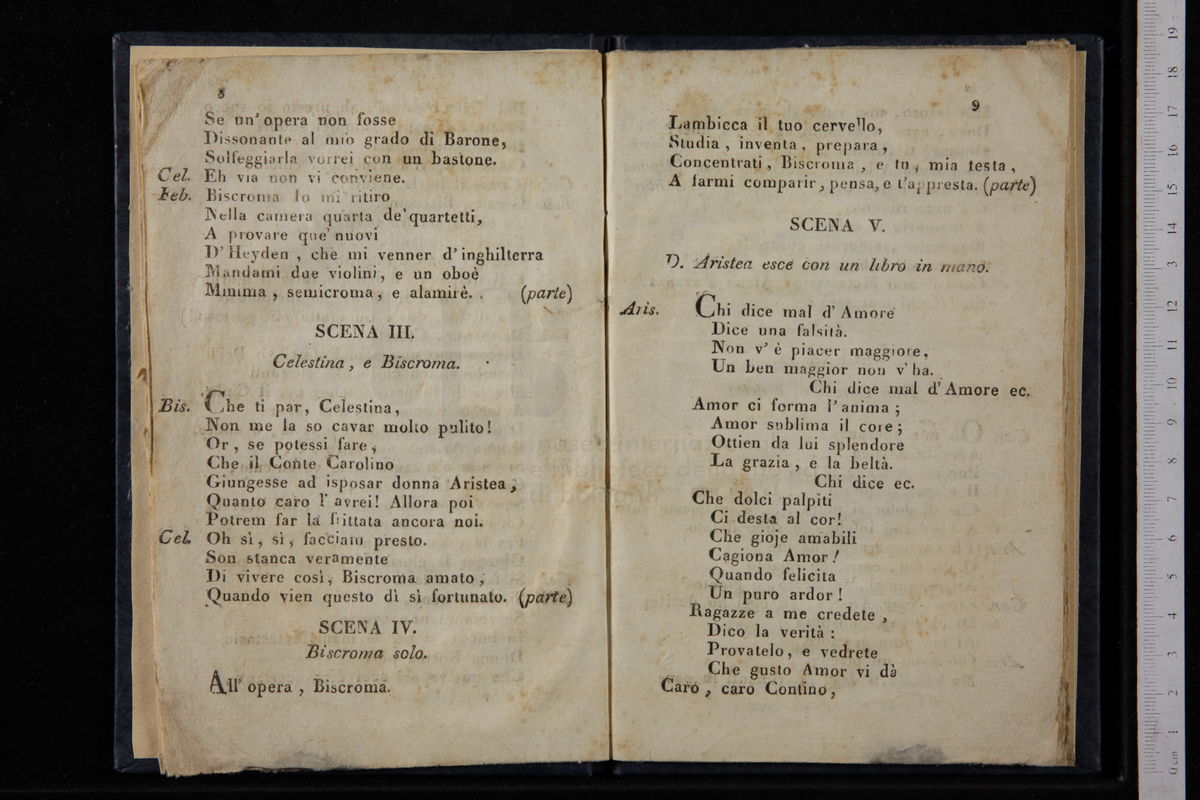 8
Se un' opera non fosse
Dissonante al mio grado di Barone,
Solfeggiarla vorrei con un bastone.
Cel. Eh via non vi conviene.
Feb. Biscroma Io mi ritiro
Nella camera quarta de' quartetti,
A provare que' nuovi
D' Heyden, che mi venner d' inghilterra
Mandami due violini, e un oboè
Minima, semicroma, e alamirè. . (parte)
SCENA III.
Celestina, e Biscroma.
Bis. Che ti par, Celestina,
Non me la so cavar molto pulito!
Or, se potessi fare,
Che il Conte Carolino
Giungesse ad isposar donna Aristea,
Quanto caro l' avrei! Allora poi
Potrem far la frittata ancora noi.
Cel. Oh sì, sì, facciam presto.
Son stanca veramente
Di vivere così, Biscroma amato,
Quando vien questo dì sì fortunato. (parte)
SCENA IV.
Biscroma solo.
All' opera, Biscroma.
9
Lambicca il tuo cervello,
Studia, inventa, prepara,
Concentrati, Biscroma, e tu, mia testa,
A farmi comparir, pensa, e t'appresta. (parte)
SCENA V.
D. Aristea esce con un libro in mano.
Aris. Chi dice mal d' Amore
Dice una falsità.
Non v' è piacer maggiore,
Un ben maggior non v' ha.
Chi dice mal d' Amore ec.
Amor ci forma l' anima;
Amor sublima il core;
Ottien da lui splendore
La grazia, e la beltà.
Chi dice ec.
Che dolci palpiti
Ci desta al cor!
Che gioje amabili
Cagiona Amor!
Quando felicita
Un puro ardor!
Ragazze a me credete,
Dico la verità:
Provatelo, e vedrete
Che gusto Amor vi dà
Caro, caro Contino,
0 cm 1 2 3 4 5 6 7 8 9 10 11 12 13 14 15 16 17 18 19